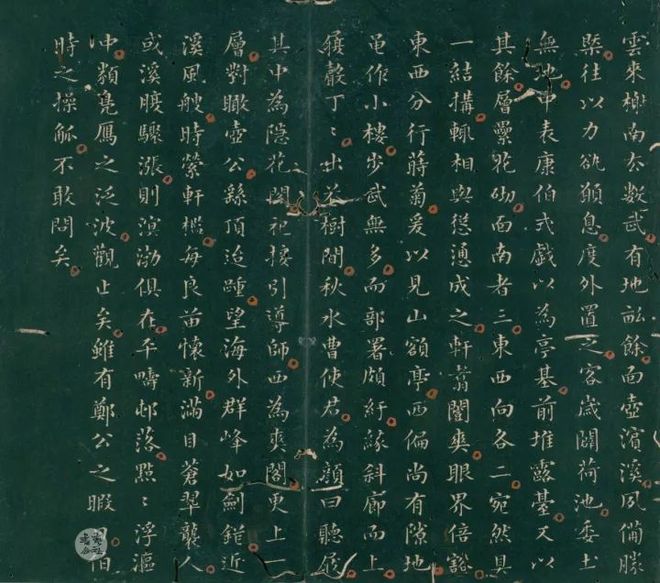 雲來榭南去數武有地畝餘面壺濱溪夙備勝
槩往以力欲願息度外置之客歲闢荷池委土
無地中表康伯式戲以為亭基前堆露臺又以
其餘層纍花砌面南者三東西向各二宛然具
一結搆輒相與慫慂成之軒翥闓爽眼界倍豁
東西分行蒔菊爰以見山額亭西偏尚有隙地
黽作小樓步武無多而部署頗紆緣斜廊而上
屧聲丁〻出花樹間秋水曹使君為顏曰聽屧
其中為隱花閣祀接引導師西為爽閣更上一
層對瞰壺公繇頂迨踵望海外群峰如劍錯近
溪風艘時縈軒檻每良苗懷新滿目蒼翠襲人
或溪陂驟漲則溟渤俱在平疇邨落點〻浮漚
冲纇鳧鴈之泛波觀止矣雖有鄭公之暇
時之操觚不敢問矣